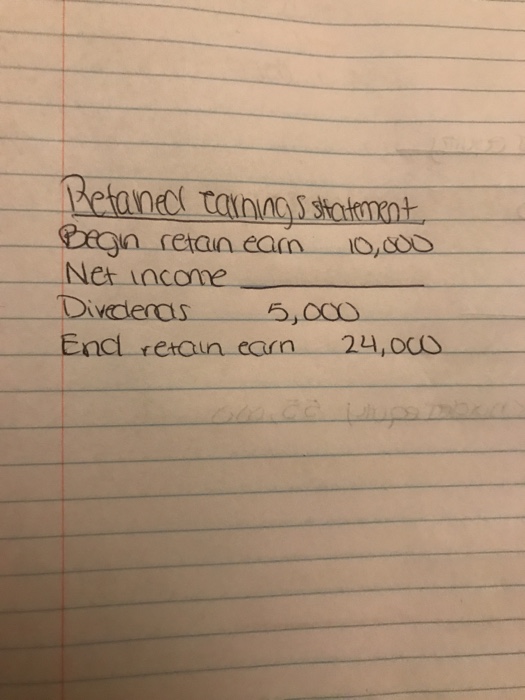 Retained earnings statement
Begin retain earn 10,000
Net income
Divedends 5,000
End retain earn 24,000